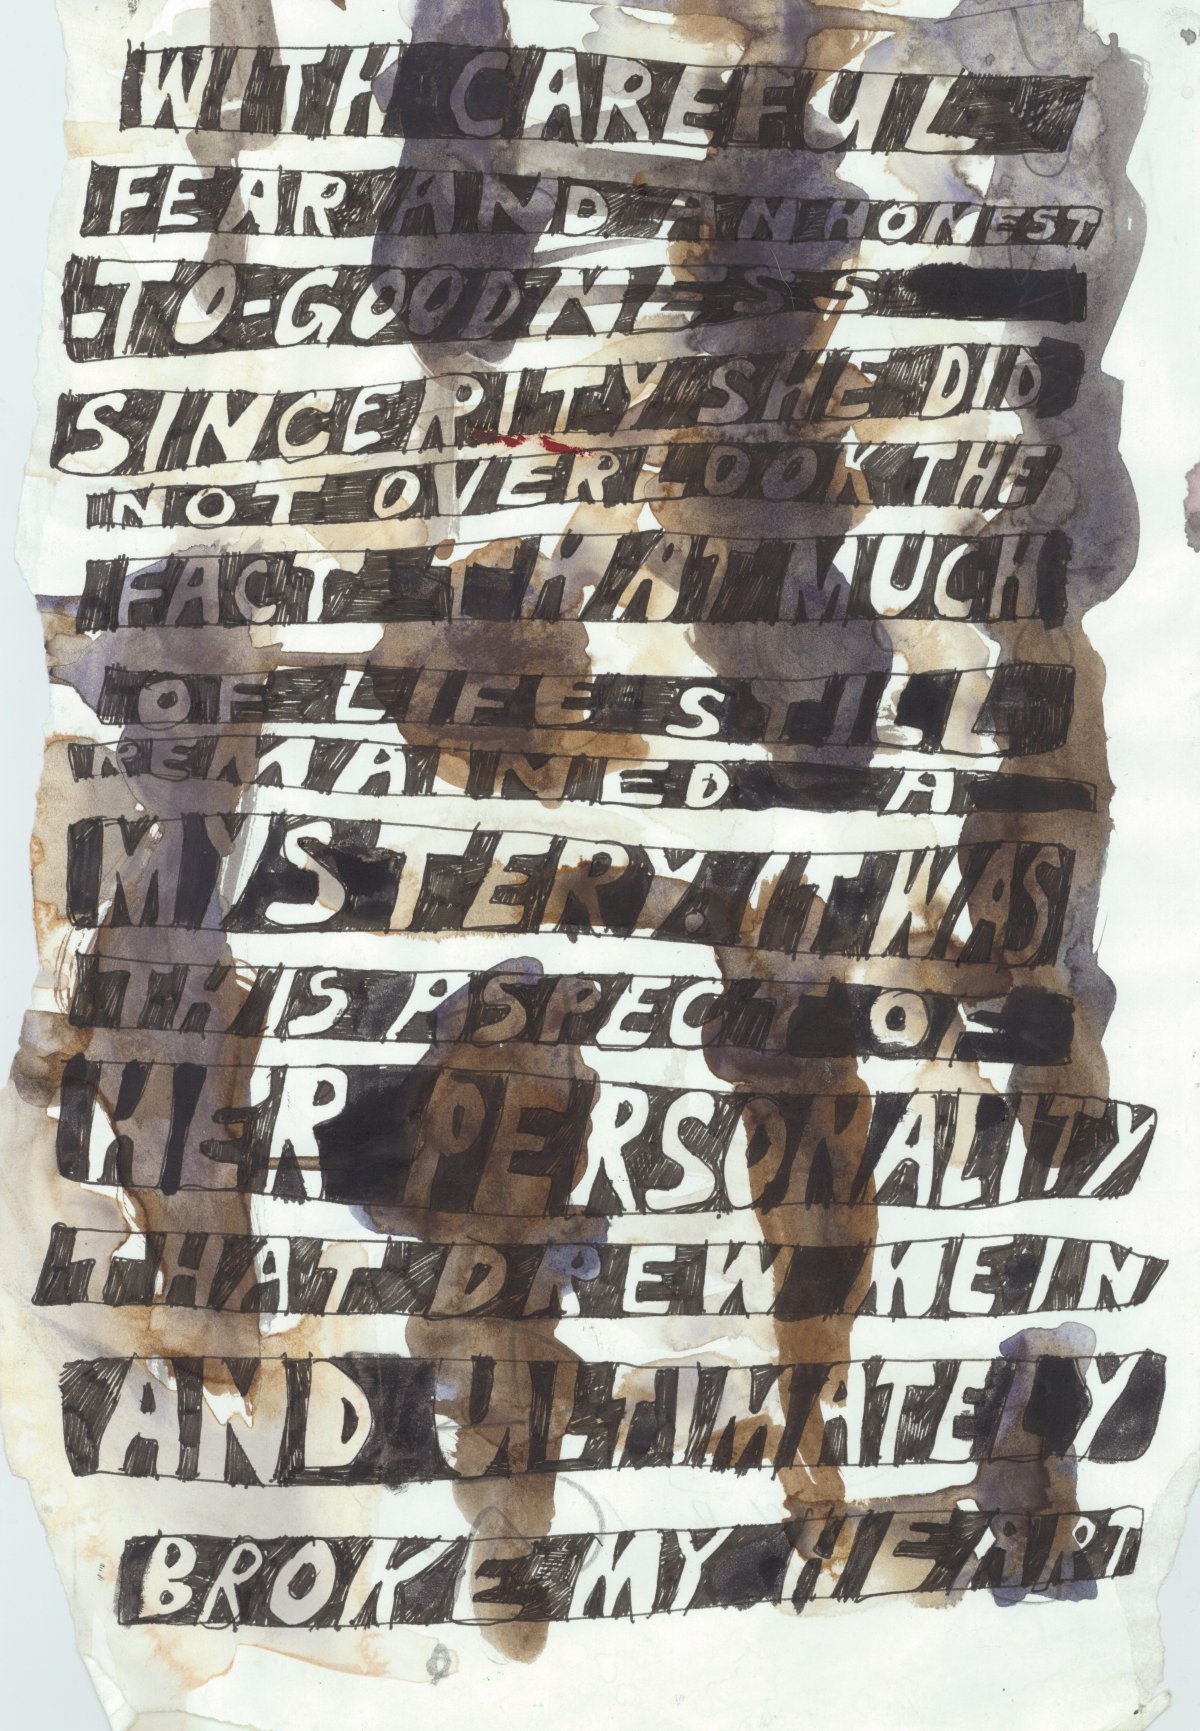 WITH CAREFUL
FEAR AND AN HONEST
-TO-GOODNESS
SINCERITY SHE DID
NOT OVERLOOK THE
FACT THAT MUCH
OF LIFE STILL
REMAINED A
MYSTERY. IT WAS
THIS ASPECT OF
HER PERSONALITY
THAT DREW ME IN
AND ULTIMATELY
BROKE MY HEART